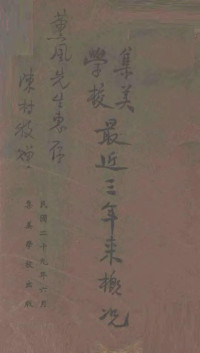 集美
學校
最近三年來概況
薰風先生惠存
陳村牧贈
民國二十九年一月
集美學校出版